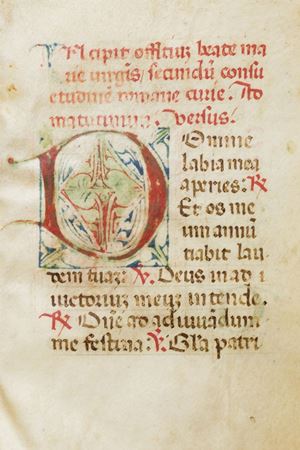 Incipit offitiuz beate ma
rie virginis secundū consu
etudinē romane curie. Ad
matutinuz. Versus.
Domine
labia mea
aperies: ℟
Et os me
um annū
tiabit lau
dem tuaz: ℣. Deus in ad i
utorium meuz intende.
℟ Dn̄e ad adiuuandum
me festina: ℣. Gl̄a patri